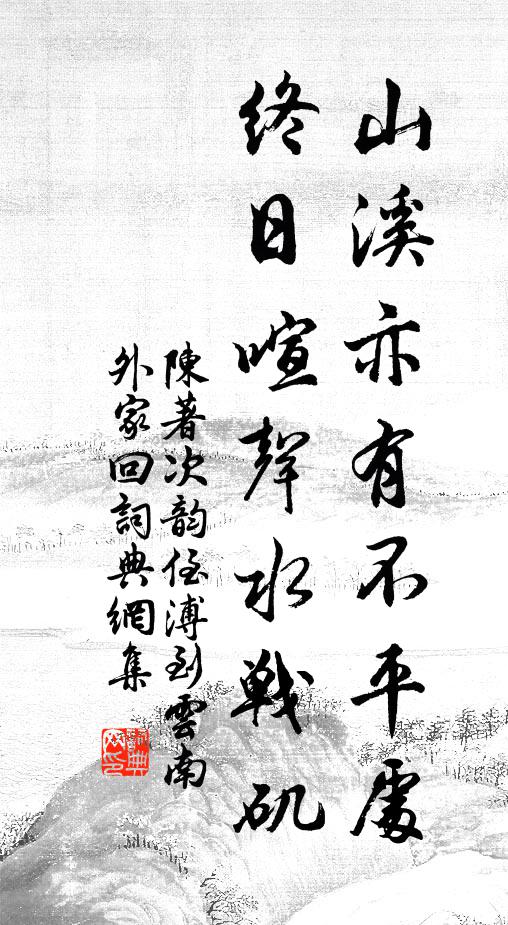 山溪亦有不平處
終日喧聲水戰矶
陳著次韵侄溥到雲南
外家回詞典網集